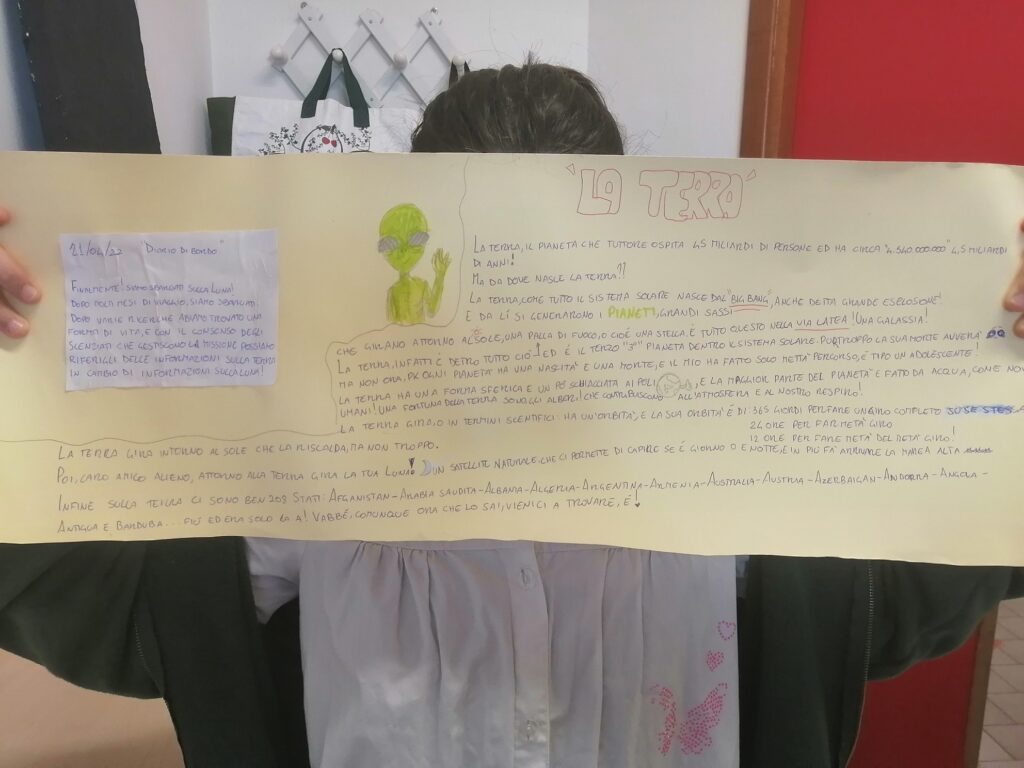 "LA TERRA"
21/04/22 "DIARIO DI BORDO"
FINALMENTE! SIAMO SBARCATI SULLA LUNA!
DOPO MOLTI MESI DI VIAGGIO, SIAMO SBARCATI!
DOPO VARIE RICERCHE ABIAMO TROVATO UNA
FORMA DI VITA, E CON IL CONSENSO DEGLI
SCENZIATI CHE GESTISCONO LA MISSIONE POSSIAMO
RIFERIGLI DELLE INFORMAZIONI SULLA TERRA
IN CAMBIO DI INFORMAZIONI SULLA LUNA!
LA TERRA, IL PIANETA CHE TUTT'ORE OSPITA 4,5 MILIARDI DI PERSONE ED HA CIRCA "4.540.000.000" 4,5 MILIARDI
DI ANNI!
MA DA DOVE NASCE LA TERRA??
LA TERRA, COME TUTTO IL SISTEMA SOLARE NASCE DAL "BIG BANG", ANCHE DETTA GRANDE ESPLOSIONE!
E DA LÍ SI GENERARONO I PIANETI, GRANDI SASSI
CHE GIRANO ATTORNO AL SOLE, UNA PALLA DI FUOCO, O CIOÉ UNA STELLA E TUTTO QUESTO NELLA VIA LATEA! UNA GALASSIA!
LA TERRA, INFATTI È DETRO TUTTO CIÓ! ED É IL TERZO "3º" PIANETA DENTRO IL SISTEMA SOLARE. PURTROPPO LA SUA MORTE AVVERÁ
MA NON ORA, PK OGNI PIANETA HA UNA NASCITÁ E UNA MORTE, E IL MIO HA FATTO SOLO METÁ PERCORSO, É TIPO UN ADOLESCENTE!
LA TERRA HA UNA FORMA SFERICA E UN PÓ SCHIACCIATA AI POLI, E LA MAGGIOR PARTE DEL PIANETA É FATTO DA ACQUA, COME NOI
UMANI! UNA FORTUNA DELLA TERRA SONO GLI ALBERI CHE CONTRIBUISCONO ALL'ATMOSFERA E AL NOSTRO RESPIRO!
LA TERRA GIRA, O IN TERMINI SCENTIFICI: HA UN'ORBITÁ, E LA SUA ORBITÁ É DI: 365 GIORDI PER FARE UN GIRO COMPLETO SU SE STESSA
24 ORE PER FAR METÁ GIRO
12 ORE PER FARE METÁ DEL METÁ GIRO!
LA TERRA GIRA INTORNO AL SOLE CHE LA RISCALDA, MA NON TROPPO.
POI, CARO AMICO ALIENO, ATTORNO ALLA TERRA GIRA LA TUA LUNA! UN SATELLITE NATURALE, CHE CI PERMETTE DI CAPIRE SE É GIORNO O É NOTTE, E IN PIÚ FÁ ARRIVARE LA MAREA ALTA
INFINE SULLA TERRA CI SONO BEN 208 STATI: AFGANISTAN-ARABIA SAUDITA-ALBANIA-ALGERIA-ARGENTINA-ARMENIA-AUSTRALIA-AUSTRIA-AZERBAIGAN-ANDORRA-ANGOLA-
ANTIGUA E BARDUBA... FIÚ ED ERA SOLO LA A! VABBÉ, COMUNQUE ORA CHE LO SAI, VIENICI A TROVARE, E!